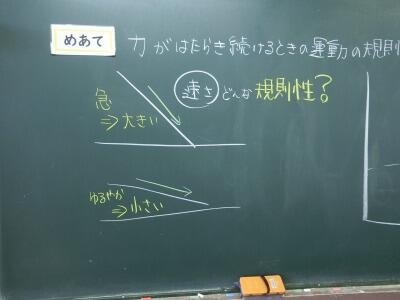 めあて
力がはたらき続けるときの運動の規則
速さ どんな規則性?
急
⇒大きい
ゆるやか
⇒小さい